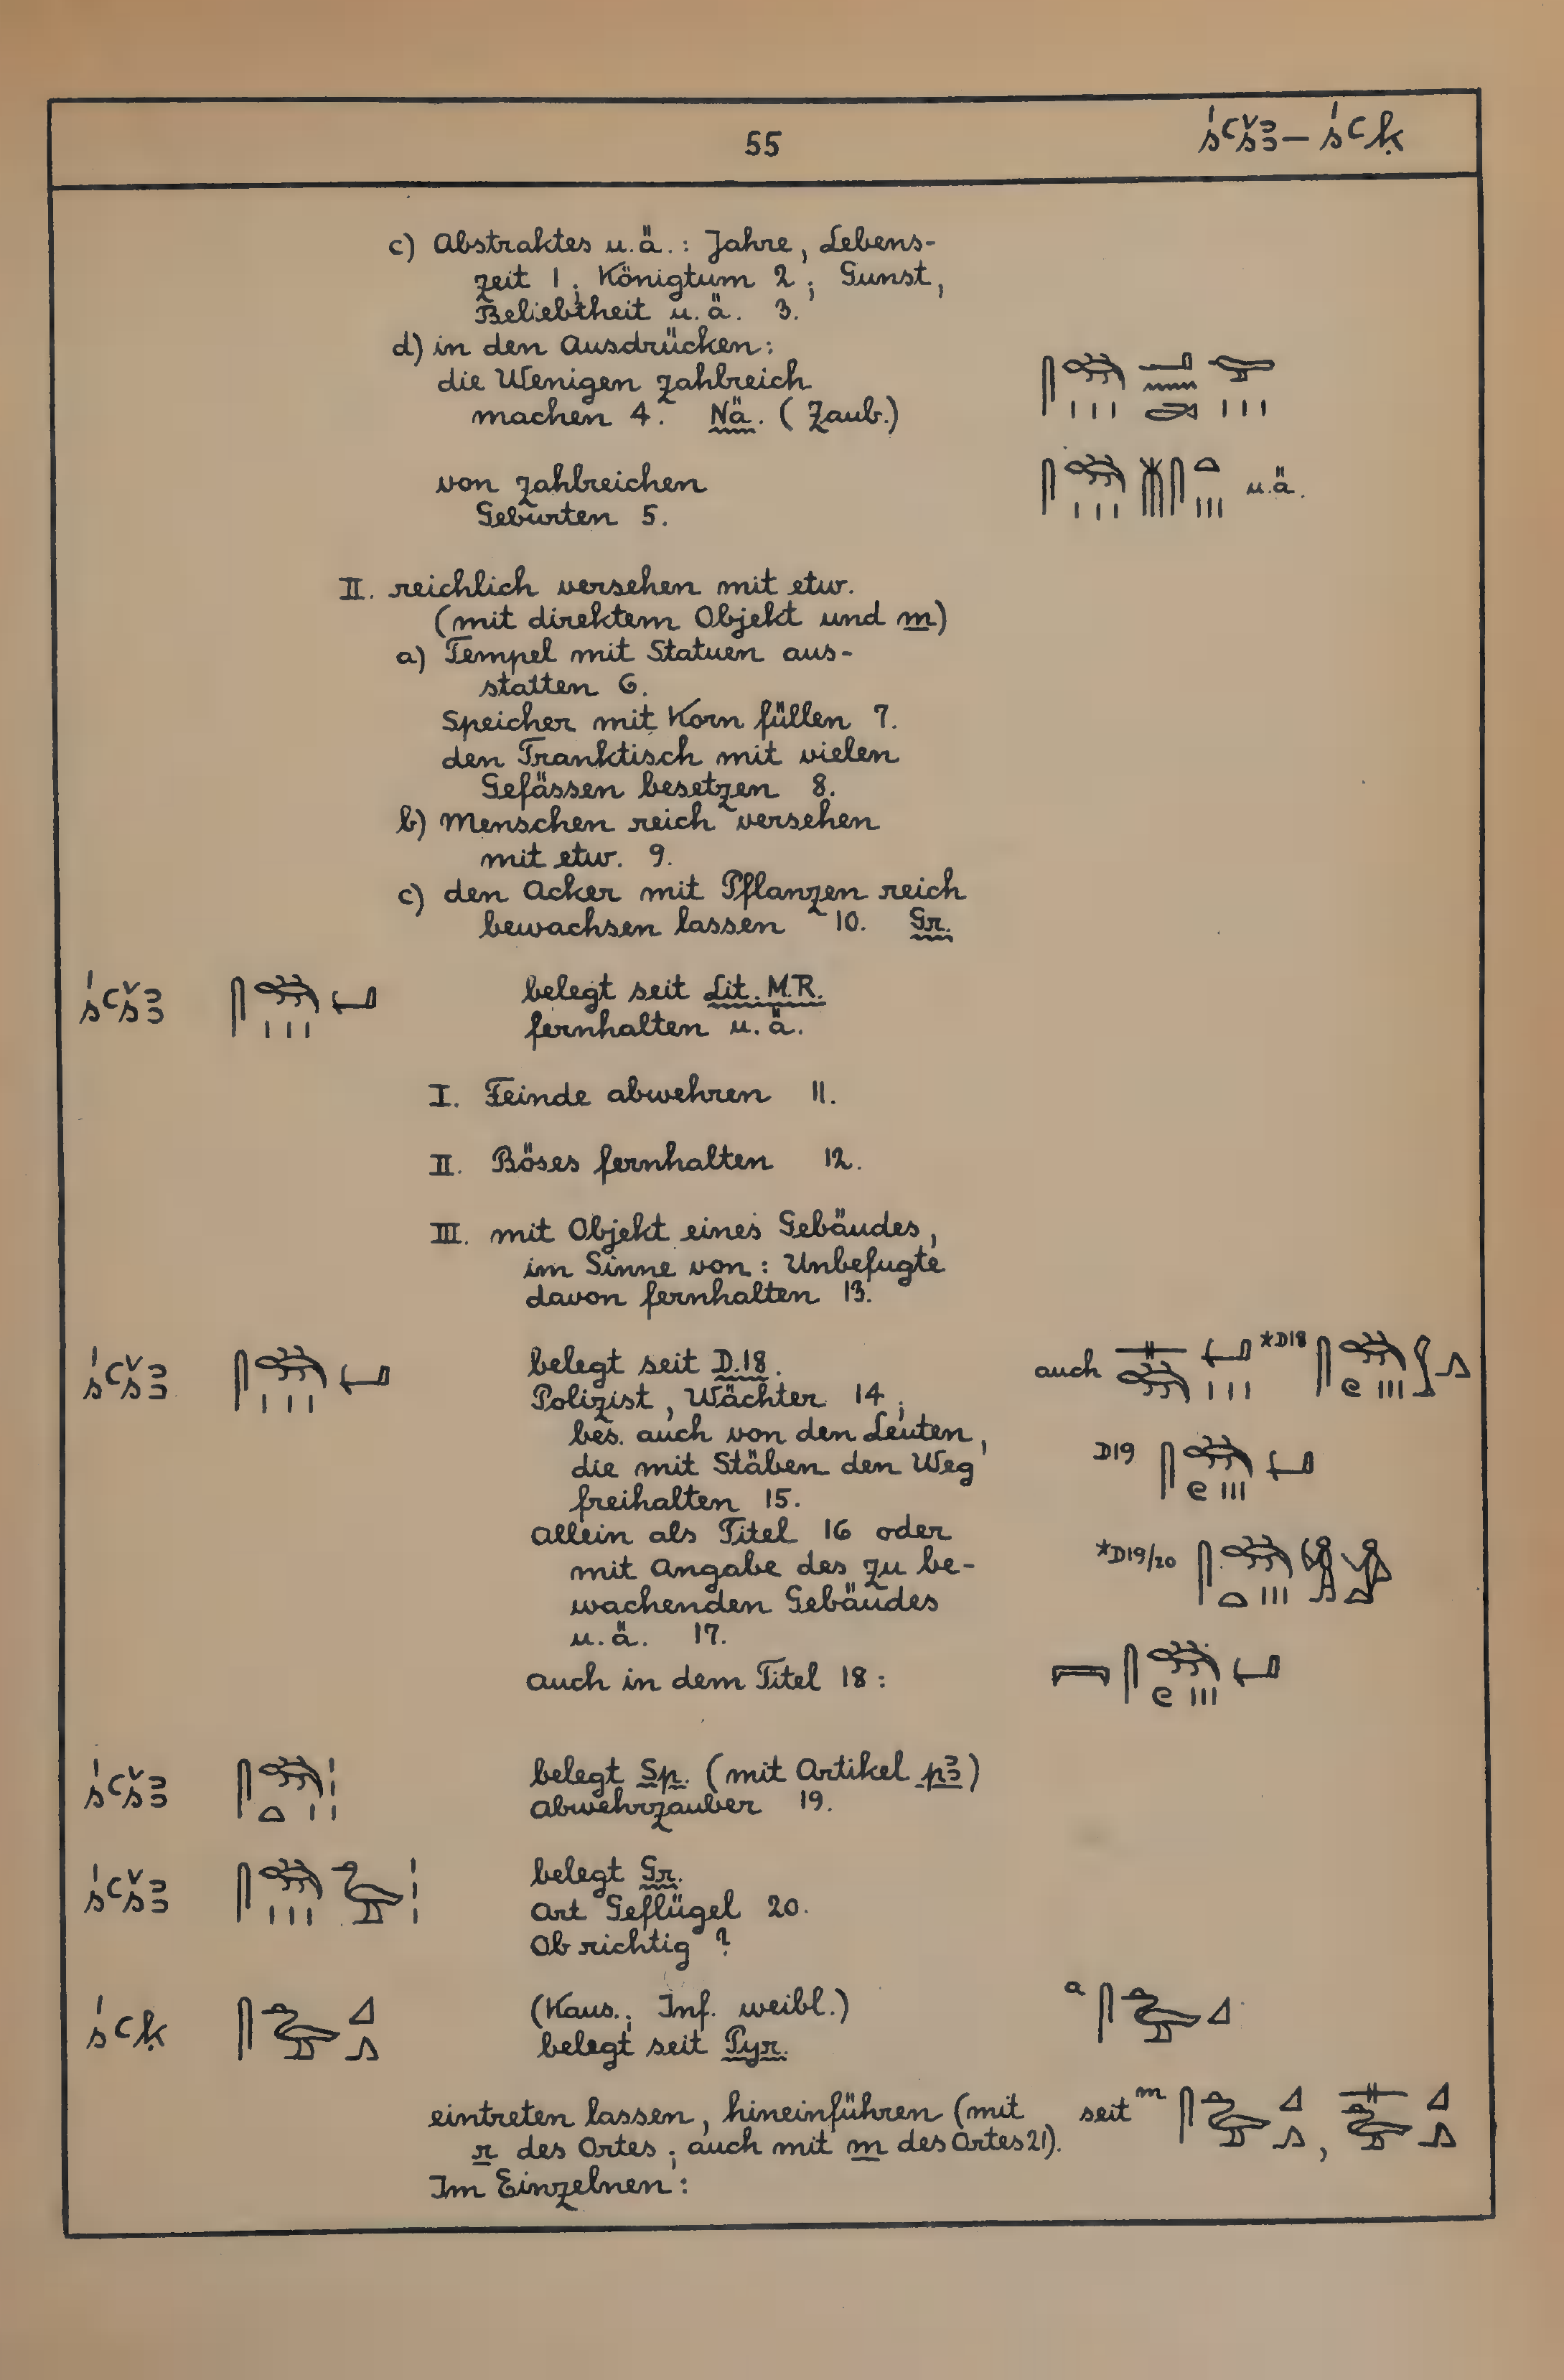 55 śꜥšꜣ – śꜥḳ
c) Abstraktes u.ä.: Jahre, Lebens-
zeit 1; Königtum 2; Gunst,
Beliebtheit u.ä. 3.
d) in den Ausdrücken:
die Wenigen zahlreich
machen 4. Nä. (Zaub.)
von zahlreichen u.ä.
Geburten 5.
II. reichlich versehen mit etw.
(mit direktem Objekt und m)
a) Tempel mit Statuen aus-
statten 6.
Speicher mit Korn füllen 7.
den Tranktisch mit vielen
Gefässen besetzen 8.
b) Menschen reich versehen
mit etw. 9.
c) den Acker mit Pflanzen reich
bewachsen lassen 10. Gr.
śꜥšꜣ belegt seit Lit. M.R.
fernhalten u.ä.
I. Feinde abwehren 11.
II. Böses fernhalten 12.
III. mit Objekt eines Gebäudes,
im Sinne von: Unbefugte
davon fernhalten 13.
śꜥšꜣ belegt seit D.18. auch *D18
Polizist, Wächter 14;
bes. auch von den Leuten,
die mit Stäben den Weg D19
freihalten 15.
Allein als Titel 16 oder
mit Angabe des zu be- *D19/20
wachenden Gebäudes
u.ä. 17.
auch in dem Titel 18:
śꜥšꜣ belegt Sp. (mit Artikel pꜣ)
Abwehrzauber 19.
śꜥšꜣ belegt Gr.
Art Geflügel 20.
Ob richtig?
śꜥḳ (Kaus.; Inf. weibl.) a
belegt seit Pyr.
eintreten lassen, hineinführen (mit seit m ,
r des Ortes; auch mit m des Ortes 21).
Im Einzelnen: